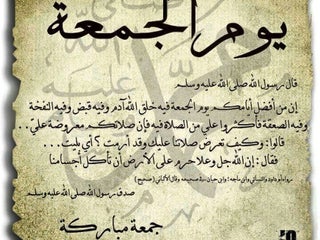 يوم الجمعة
قال رسول الله صلى الله عليه وسلم
إن من أفضل أيامكم يوم الجمعة فيه خلق الله آدم وفيه قبض وفيه النفخة
وفيه الصعقة فأكثروا علي من الصلاة فيه فإن صلاتكم معروضة علي ..
قالوا: وكيف تعرض صلاتنا عليك وقد أرمت ؟ أي بليت ...
فقال : إن الله جل وعلا حرم على الأرض أن تأكل أجسامنا
رواه أبو داود والنسائي وابن ماجه ؛ وابن حبان في صحيحه وقال الألباني (صحيح)
صدق رسول الله صلى الله عليه وسلم
جمعة مباركة